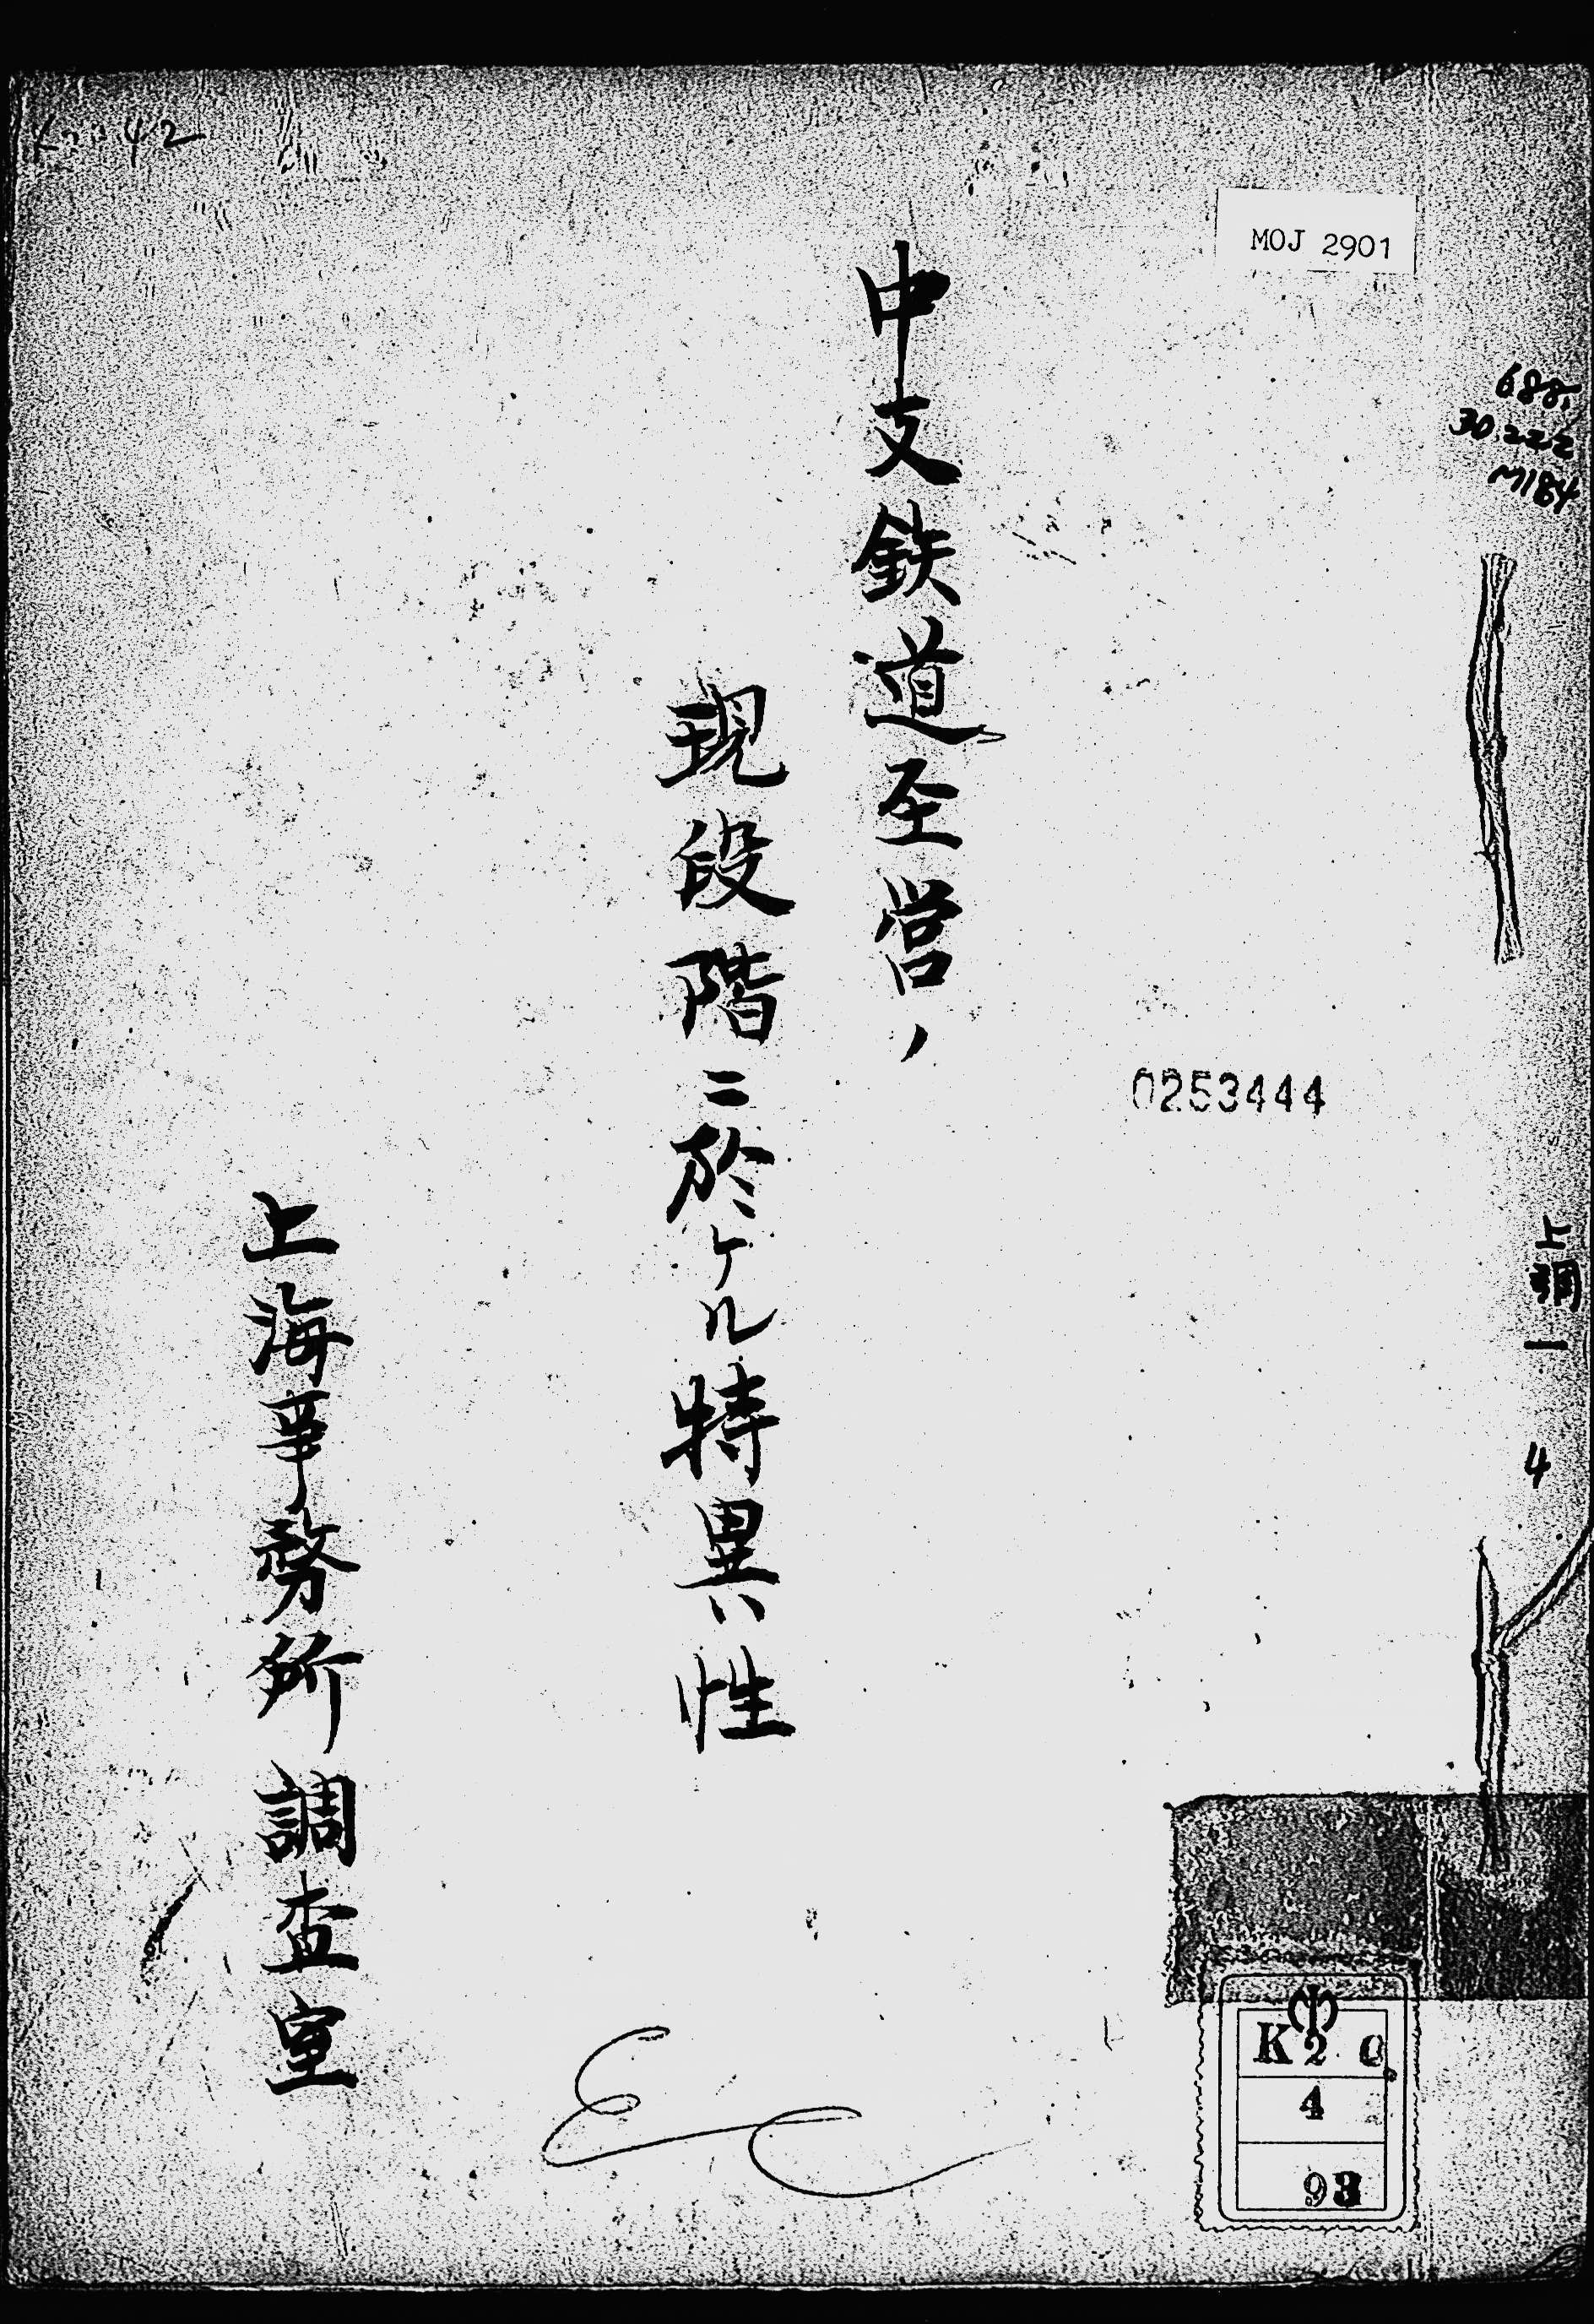 MOJ 2901
688.
30222
M184
上調一 4
中支鉄道経営ノ
現段階ニ於ケル特異性
上海事務所調査室
0253444
K2
4
93